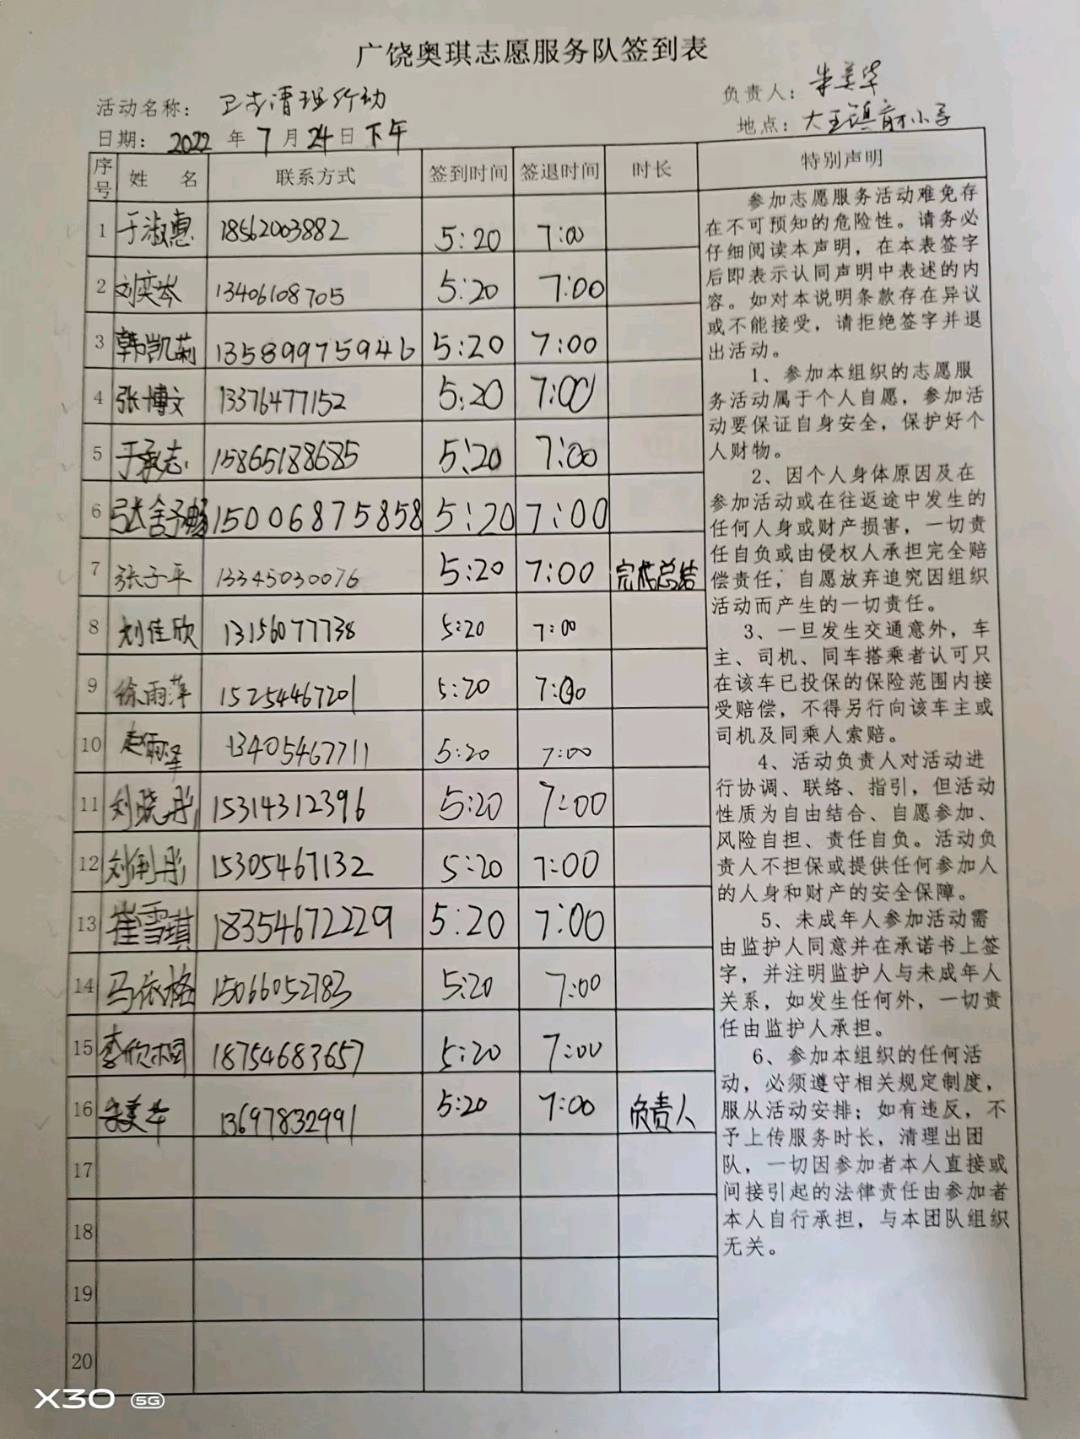 广饶奥琪志愿服务队签到表
活动名称： 卫生清理行动 负责人： 朱美华
日期： 2022 年 7 月 24 日 下午 地点： 大王镇育才小学
序号 姓 名 联系方式 签到时间 签退时间 时长 特别声明
1 于淑惠 18562003882 5:20 7:00
2 刘奕岑 13406108705 5:20 7:00
3 韩凯莉 13589975946 5:20 7:00
4 张博文 13376477152 5:20 7:00
5 于承志 15865188685 5:20 7:00
6 张舍予畅 15006875858 5:20 7:00
7 张子平 13345030076 5:20 7:00 完成总结
8 刘佳欣 13156077738 5:20 7:00
9 徐雨萍 15254467201 5:20 7:00
10 13405467711 5:20 7:00
11 刘晓彤 15314312396 5:20 7:00
12 15305467132 5:20 7:00
13 崔雪琪 18354672229 5:20 7:00
14 马依格 15066052783 5:20 7:00
15 李欣桐 18754683657 5:20 7:00
16 朱美华 13697832991 5:20 7:00 负责人
17
18
19
20
参加志愿服务活动难免存
在不可预知的危险性。请务必
仔细阅读本声明，在本表签字
后即表示认同声明中表述的内
容。如对本说明条款存在异议
或不能接受，请拒绝签字并退
出活动。
1、参加本组织的志愿服
务活动属于个人自愿，参加活
动要保证自身安全，保护好个
人财物。
2、因个人身体原因及在
参加活动或在往返途中发生的
任何人身或财产损害，一切责
任自负或由侵权人承担完全赔
偿责任，自愿放弃追究因组织
活动而产生的一切责任。
3、一旦发生交通意外，车
主、司机、同车搭乘者认可只
在该车已投保的保险范围内接
受赔偿，不得另行向该车主或
司机及同乘人索赔。
4、活动负责人对活动进
行协调、联络、指引，但活动
性质为自由结合、自愿参加、
风险自担、责任自负。活动负
责人不担保或提供任何参加人
的人身和财产的安全保障。
5、未成年人参加活动需
由监护人同意并在承诺书上签
字，并注明监护人与未成年人
关系，如发生任何外，一切责
任由监护人承担。
6、参加本组织的任何活
动，必须遵守相关规定制度，
服从活动安排；如有违反，不
予上传服务时长，清理出团
队，一切因参加者本人直接或
间接引起的法律责任由参加者
本人自行承担，与本团队组织
无关。
X30 5G